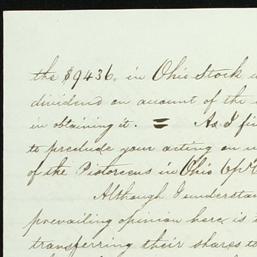 the $9436, in Ohio Stock
dividend on account of the
in obtaining it. = As I
to preclude your acting on
of the Pictorcus in Ohio 6 p
Although I understa
prevailing opinion here is
transferring their shares to